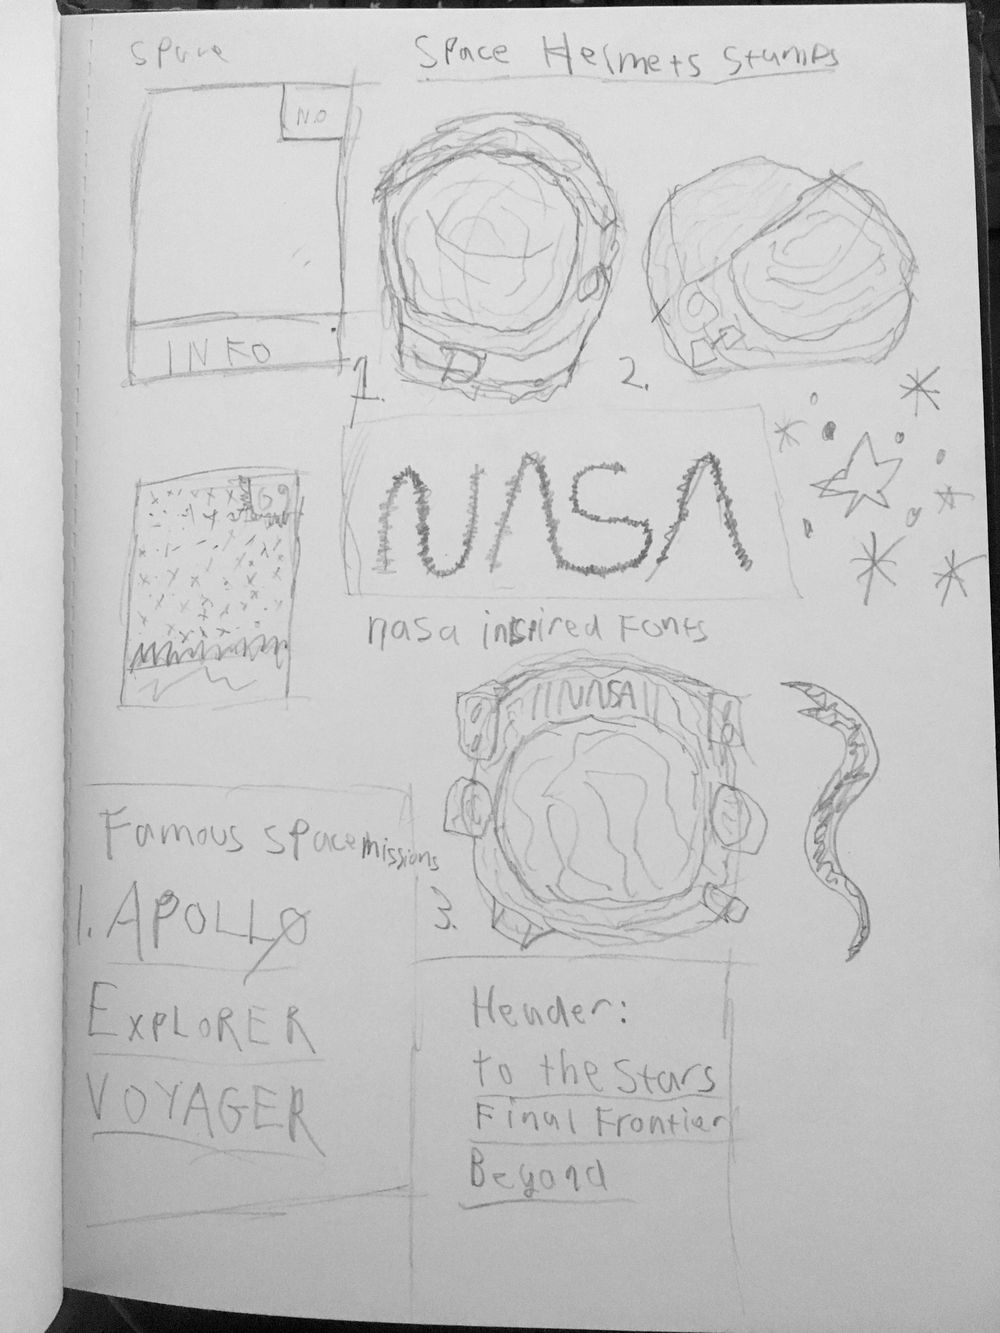 Space
Space Helmets Stamps
N.O
INFO
1.
2.
69
NASA
nasa inspired Fonts
NASA
3.
Famous space missions
1. APOLLO
EXPLORER
VOYAGER
Header:
to the Stars
Final Frontier
Beyond